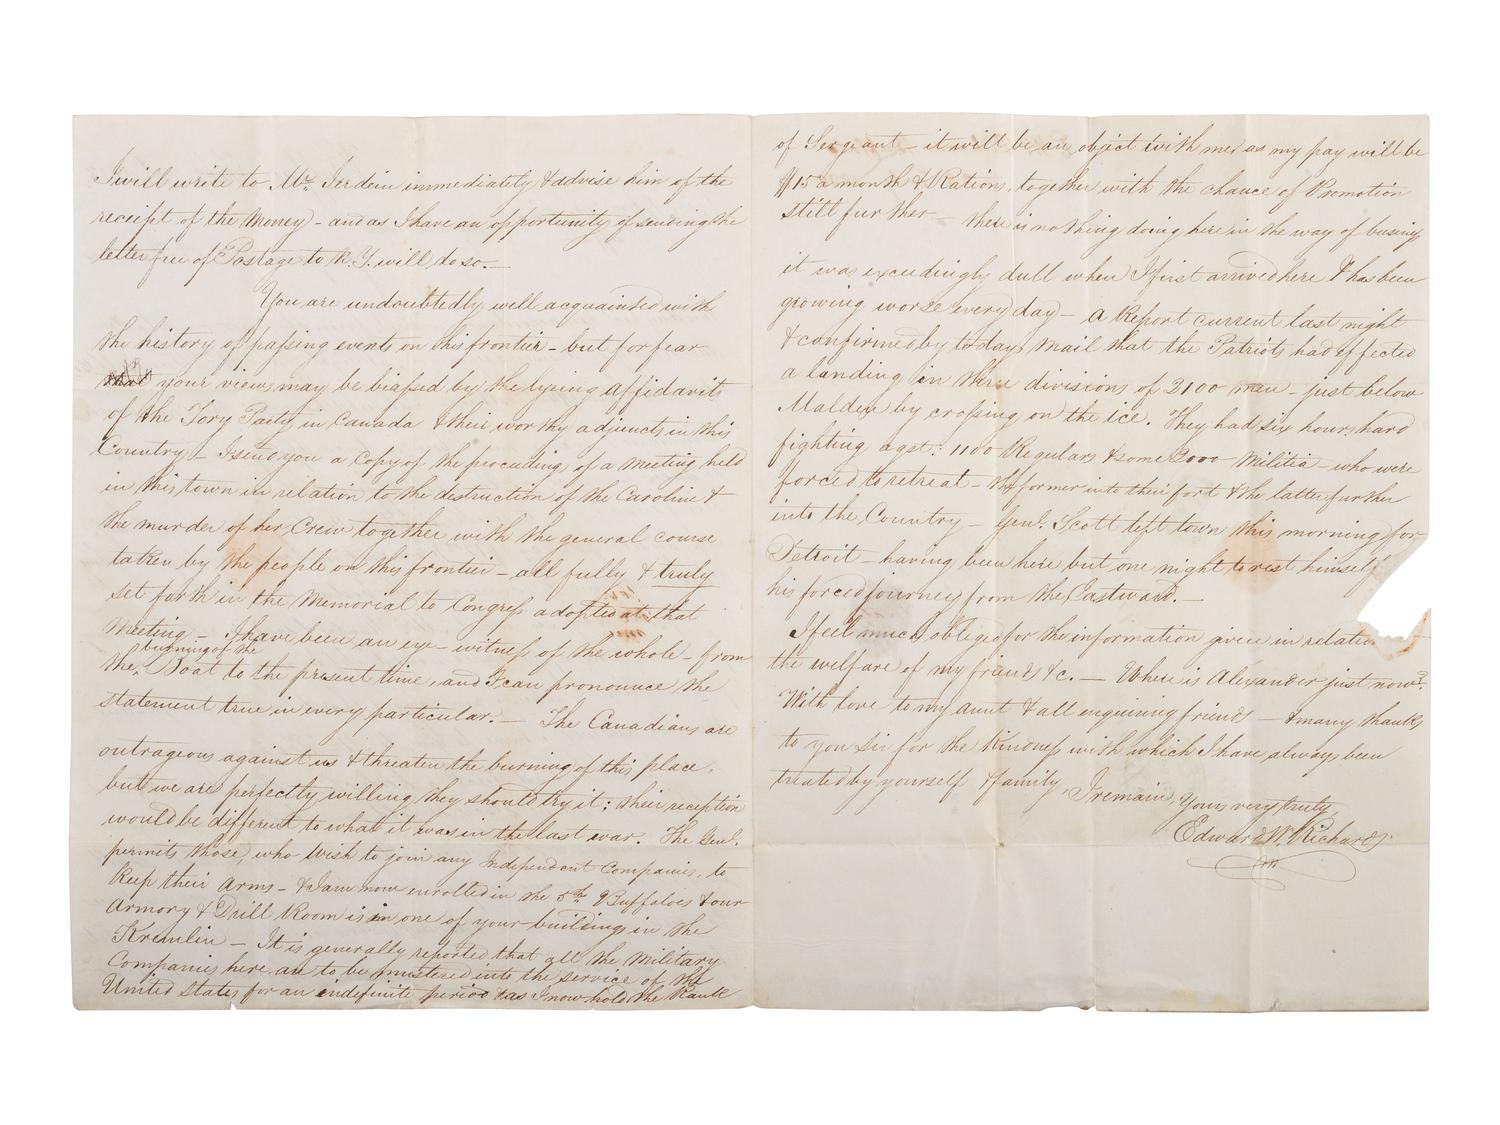 I will write to Mr. Jerdein immediately & advise him of the
receipt of the Money - and as I have an opportunity of sending the
letter free of Postage to N.Y. will do so. —
You are undoubtedly well acquainted with
the history of passing events on this frontier - but for fear
your views may be biassed by the lying affidavits
of the Tory Party in Canada & their worthy adjuncts in this
Country - I send you a copy of the proceedings of a Meeting held
in this town in relation to the destruction of the Caroline &
the murder of her Crew together with the general course
taken by the people on this frontier - all fully & truly
set forth in the Memorial to Congress adopted at that
Meeting - I have been an eye-witness of the whole - from
burning of the
the Boat to the present time, and I can pronounce the
statement true in every particular. — The Canadians are
outrageous against us & threaten the burning of this place,
but we are perfectly willing they should try it; their reception
would be different to what it was in the last war. The Genl.
permits those, who wish to join any Independent Companies, to
keep their Arms - & I am now enrolled in the 5th Buffaloes & our
Armory & Drill Room is in one of your buildings in the
Kremlin - It is generally reported that all the Military
Companies here are to be mustered into the service of the
United States for an indefinite period & as I now hold the Rank
of Sergeant - it will be an object with me, as my pay will be
$15 a month & Rations, together with the chance of Promotion
still further - there is nothing doing here in the way of business
it was exceedingly dull when I first arrived here & has been
growing worse every day - A Report current last night
& confirmed by today's Mail that the Patriots had effected
a landing in three divisions of 2100 men - just below
Malden by crossing on the ice. They had six hours hard
fighting agst: 1100 Regulars & some 2000 Militia - who were
forced to retreat - the former into their fort & the latter further
into the Country - Genl. Scott left town this morning for
Detroit - having been here but one night to rest himself
his forced journey from the Eastward. -
I feel much obliged for the information given in relation
the welfare of my friends &c. — Where is Alexander just now?
With love to my aunt & all enquiring friends - & many thanks
to you Sir for the kindness with which I have always been
treated by yourself & family, I remain, Yours very truly,
Edward W. Richards